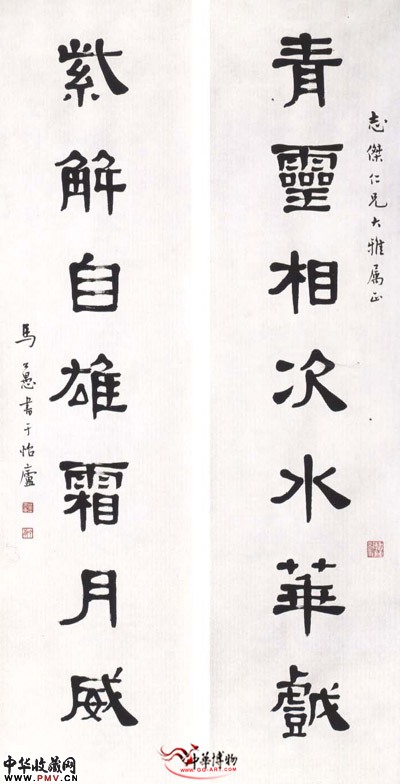 志傑仁兄大雅属正
青靈相次水華戲
紫解自雄霜月威
馬公愚書于怡廬
中华收藏网
www.PMV.CN
中華博物
www.GG-ART.COM